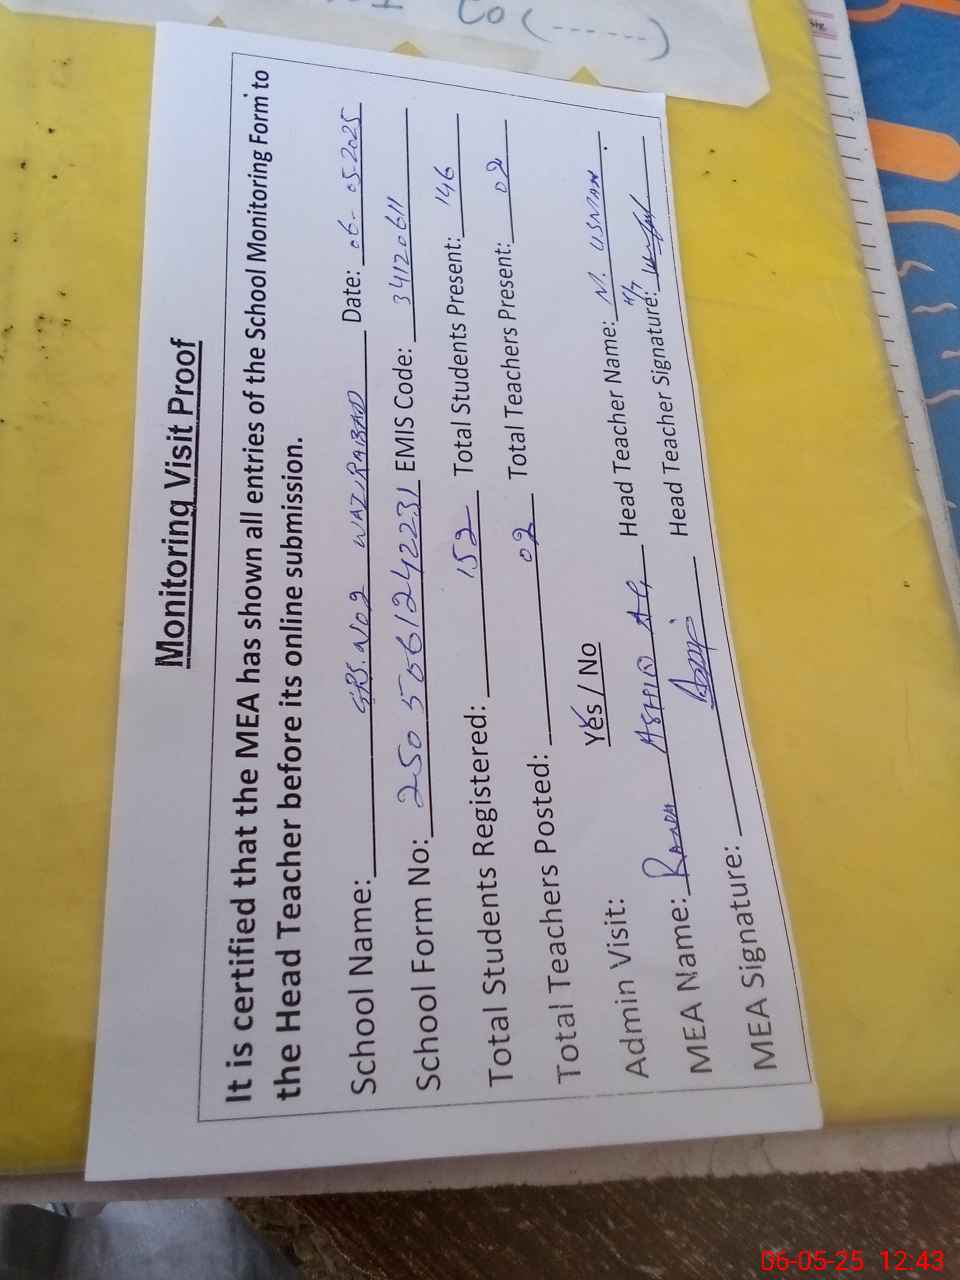 to (------)
Monitoring Visit Proof
It is certified that the MEA has shown all entries of the School Monitoring Form to
the Head Teacher before its online submission.
School Name: GPS. NO2 WAZIRABAD Date: 06-05-2025
School Form No: 250 5 0612422231 EMIS Code: 34120611
Total Students Registered: 152 Total Students Present: 146
Total Teachers Posted: 02 Total Teachers Present: 02
Admin Visit: Yes / No
MEA Name: ASHIQ Head Teacher Name: M. USMAN
MEA Signature: Head Teacher Signature:
06-05-25 12:43